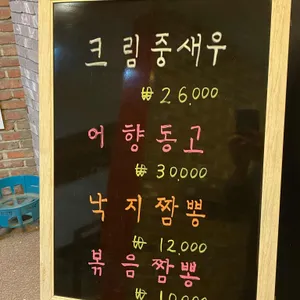 크림중새우
₩ 26,000
어향동고
₩ 30,000
낙지짬뽕
₩ 12,000
볶음짬뽕